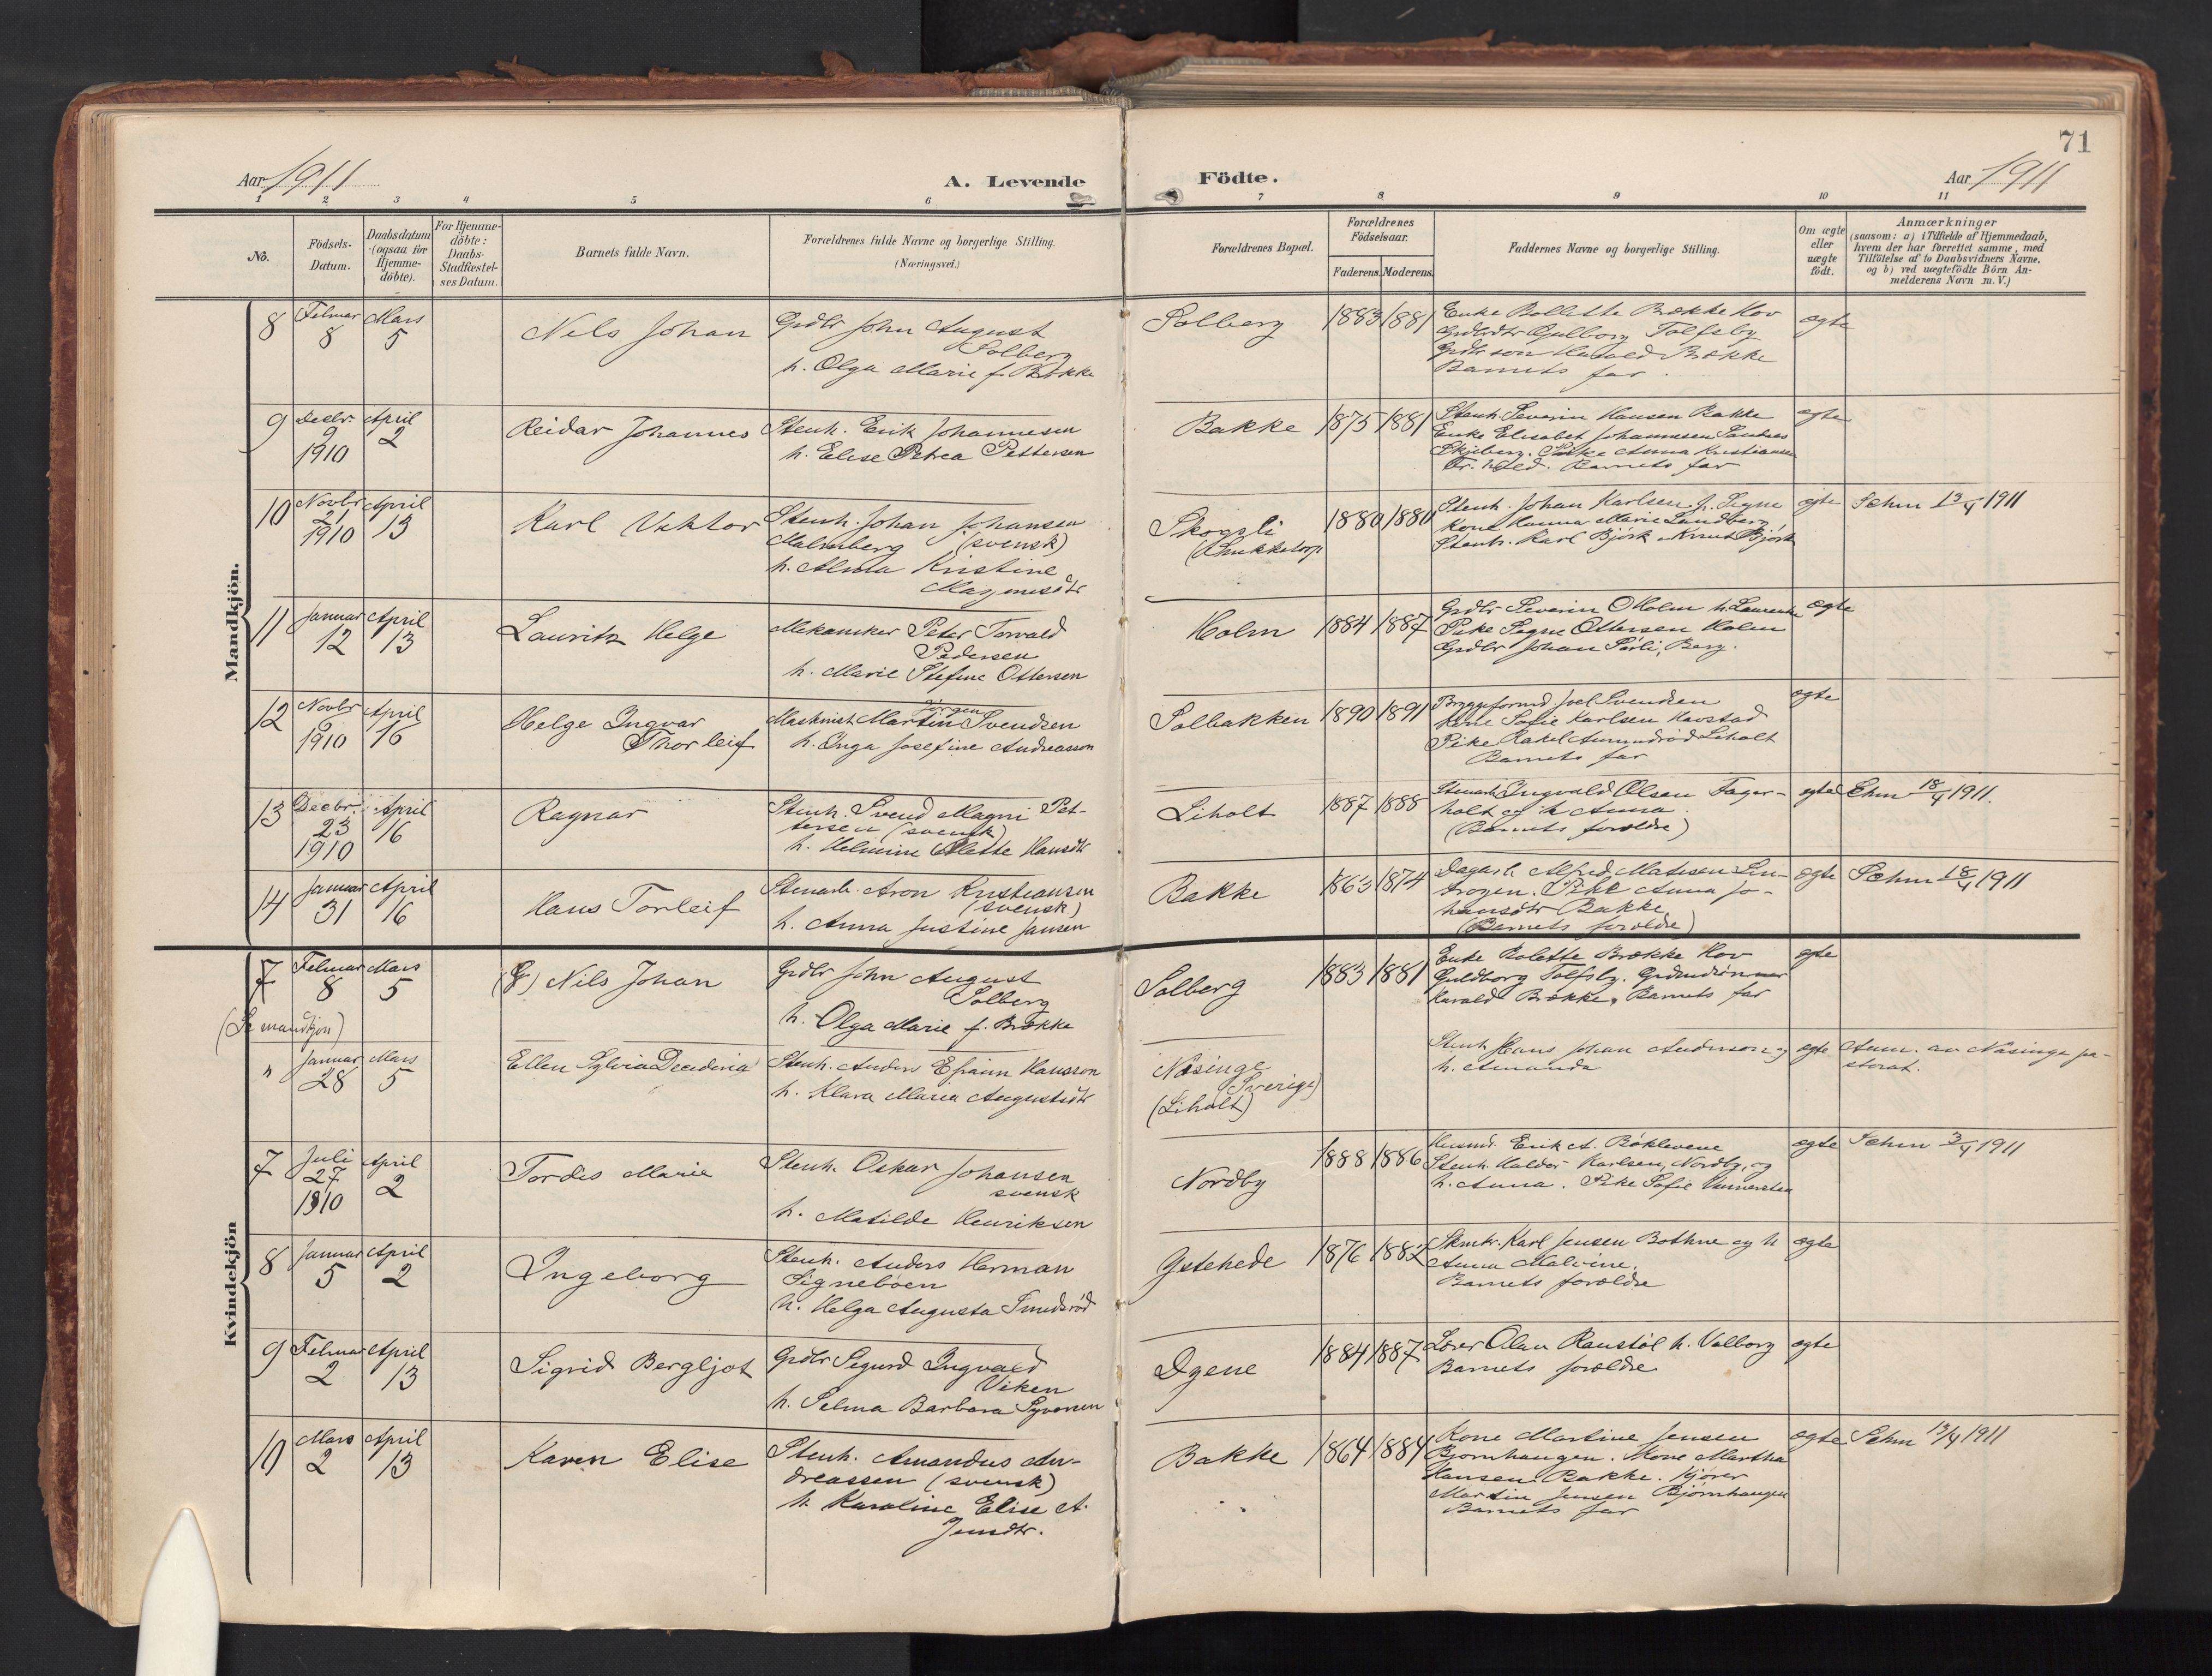 71
Aar 1911
A. Levende
Födte.
Aar 1911
1 2 3 4 5 6 7 8 9 10 11
No.
Födsels-
Datum.
Daabsdatum
(ogsaa for
Hjemme-
döbte).
For Hjemme-
döbte:
Daabs-
Stadfæstel-
ses Datum.
Barnets fulde Navn.
Forældrenes fulde Navne og borgerlige Stilling.
(Næringsvei.)
Forældrenes Bopæl.
Forældrenes
Födselsaar.
Faderens. Moderens.
Faddernes Navne og borgerlige Stilling.
Om ægte
eller
uægte
födt.
Anmærkninger
(saasom: a) i Tilfælde af Hjemmedaab,
hvem der har forrettet samme, med
Tilföielse af to Daabsvidners Navne,
og b) ved uægtefödte Börn An-
melderens Navn m.V.)
Mandkjön.
8
Februar
8
Mars
5
Nels Johan
Grdbr John August
Solberg
h. Olga Marie f. Brække
Solberg
1883 1881
Enke Bollette Brække Hov
Gulborg Tolfsby
Grdbr son Harald Brække
Barnets far.
ægte
9
Decbr.
9
1910
April
2
Reidar Johannes
Stenh. Erik Johannesen
h. Elise Petrea Pettersen
Bakke
1875 1881
Stenh. Severin Hansen Bakke
Enke Elisabet Johannesen
Skjeberg. Pike Anna Kristiansen
Fr.hald. Barnets far
ægte
10
Novbr
21
1910
April
13
Karl Viktor
Stenh. Johan Johansen
Malmberg (svensk)
h. Alma Kristine
Magnusdtr
Skogsli
1880 1880
Stenh. Johan Karlsen, p. Signe
Kone Hanna Marie Landberg,
Stenh. Karl Björk Knut Björk
ægte
Sehm 13/4 1911
11
Januar
12
April
13
Lauritz Helge
Mekaniker Peter Torvald
Pedersen
h. Marie Stefine Ottersen
Holm
1884 1887
Grdbr Severin O Holm h. Laurentze
Pike Signe Ottersen Holm
Grdbr Johan Sörli, Berg.
ægte
12
Novbr
6
1910
April
16
Helge Ingvar
Thorleif
Jörgen
Maskinist Martin Svendsen
h. Inga Josefine Andreasson
Solbakken
1890 1891
Bryggeformd Joel Svendsen
Kone Sofie Karlsen Havstad
Pike Rakel Amundröd Liholt
Barnets far
ægte
13
Decbr.
23
1910
April
16
Ragnar
Stenh. Svend Magni Pet-
tersen (svensk)
h. Helmine Olette Hansdtr
Liholt
1887 1888
Stenarb Ingvald Olsen Fager-
holt og h Anna.
(Barnets forældre)
ægte
Ehm 18/4 1911.
14
Januar
31
April
16
Hans Torleif
Stenarb. Aron Kristiansen
(svensk)
h. Anna Justine Jansen
Bakke
1863 1874
Dagarb Alfred Matisen
Pike Anna Jo-
hansdtr Bakke
(Barnets forældre)
ægte
Sehm 18/4 1911
Kvindekjön
7
(Se mandkjön)
Februar
8
Mars
5
(8) Nils Johan
Grdbr John August
Solberg
h. Olga Marie f. Brække
Solberg
1883 1881
Enke Rolette Brække Hov
Guldborg Tolfsby.
Harald Brække, Barnets far
ægte
"
Januar
28
Mars
5
Ellen Sylvia Decideria
Stenh. Anders Efraim Hansson
h. Klara Maria Augustsdtr
Näsinge
Sverige)
(Liholt)
Stenh Hans Johan Anderson og
h. Amanda
ægte
Anm. av Näsinge pa-
storat.
7
Juli
27
1910
April
2
Tordis Marie
Stenh. Oskar Johansen
svensk
h. Matilde Henriksen
Nordby
1888 1886
Husmd. Erik A. Böklevene
Stenh. Haldor Karlsen, Nordby, og
h. Anna. Pike Sofie
ægte
Sehm 3/4 1911
8
Januar
5
April
2
Ingeborg
Stenh. Anders Herman
Signebøen
h. Helga Augusta Smidsröd
Ystehede
1876 1882
Karl Jensen Bothne og h
Anna Malvine.
Barnets forældre
ægte
9
Februar
2
April
13
Sigrid Bergljot
Grdbr Sigurd Ingvald
Viken
h. Selma Barbara Syversen
Dyene
1884 1887
Lærer Olav Raustöl h. Valborg
Barnets forældre
ægte
10
Mars
2
April
13
Karen Elise
Stenh. Amandus An-
dreassen (svensk)
h. Karoline Elise A.
Jensdtr.
Bakke
1864 1884
Kone Martine Jensen
Bjornhaugen. Kone Martha
Hansen Bakke. Kjörer
Martin Jensen Bjornhaugen
Barnets far
ægte
Sehm 13/4 1911